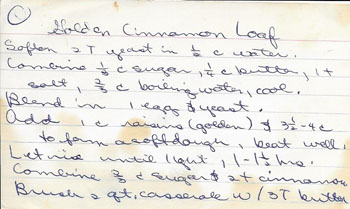 Golden Cinnamon Loaf
Soften 2 T yeast in ½ c water.
Combine ⅓ c sugar, ¼ c butter, 1 t
salt, ⅔ c boiling water, cool.
Blend in 1 egg & yeast.
Add 1 c raisins (golden) & 3½-4 c
to form a soft dough, beat well.
Let rise until light, 1-1½ hrs.
Combine ⅔ c sugar & 2 t cinnamon
Brush 2 qt. casserole w/ 3T butter